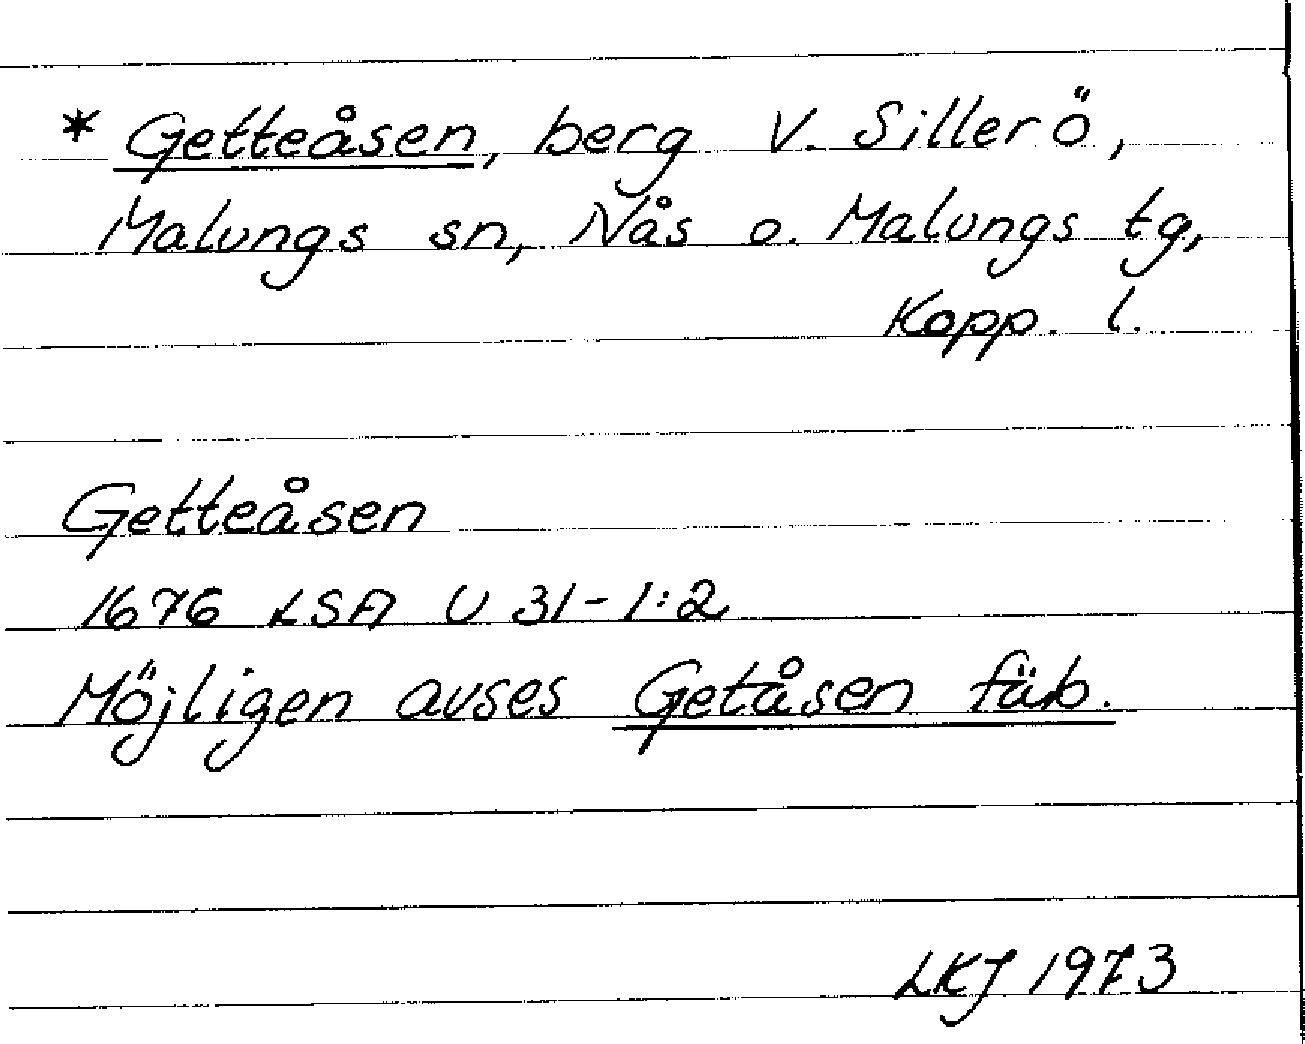 * Getteåsen, berg V. Sillerö,
Malungs sn, Nås o. Malungs tg,
Kopp. l.
Getteåsen
1676 LSA U 31-1:2
Möjligen avses Getåsen fäb.
LKJ 1973